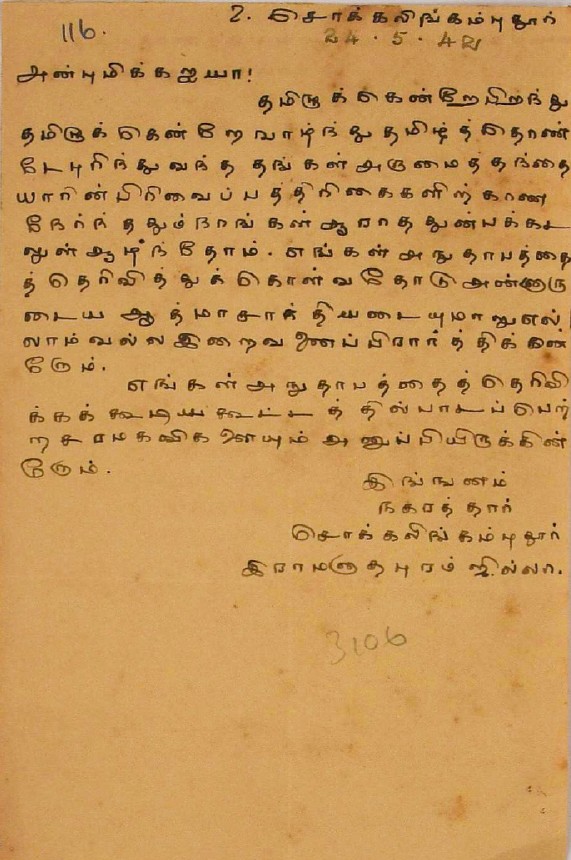 116.
உ. சொக்கலிங்கம்புதூர்
24.5.42
அன்புமிக்க ஐயா!
தமிழுக்கென்றே பிறந்து
தமிழுக்கென்றே வாழ்ந்து தமிழ்த்தொண்
டே புரிந்து வந்த தங்கள் அருமைத் தந்தை
யாரின் பிரிவைப் பத்திரிகைகளிற் காண
நேர்ந்ததும் நாங்கள் ஆராத துன்பக்கட
லுள் ஆழ்ந்தோம். எங்கள் அநுதாபத்தை
த் தெரிவித்துக் கொள்வதோடு அன்னாரு
டைய ஆத்மா சாந்தியடையுமாறு எல்
லாம் வல்ல இறைவனைப் பிரார்த்திக்கின்
றோம்.
எங்கள் அநுதாபத்தைத் தெரிவி
க்கக் கூடிய கூட்டத்தில் பாடப்பெற்
ற சரமகவிகளையும் அனுப்பியிருக்கின்
றோம்.
இங்ஙனம்
நகரத்தார்
சொக்கலிங்கம்புதூர்
இராமநாதபுரம் ஜில்லா.
3106